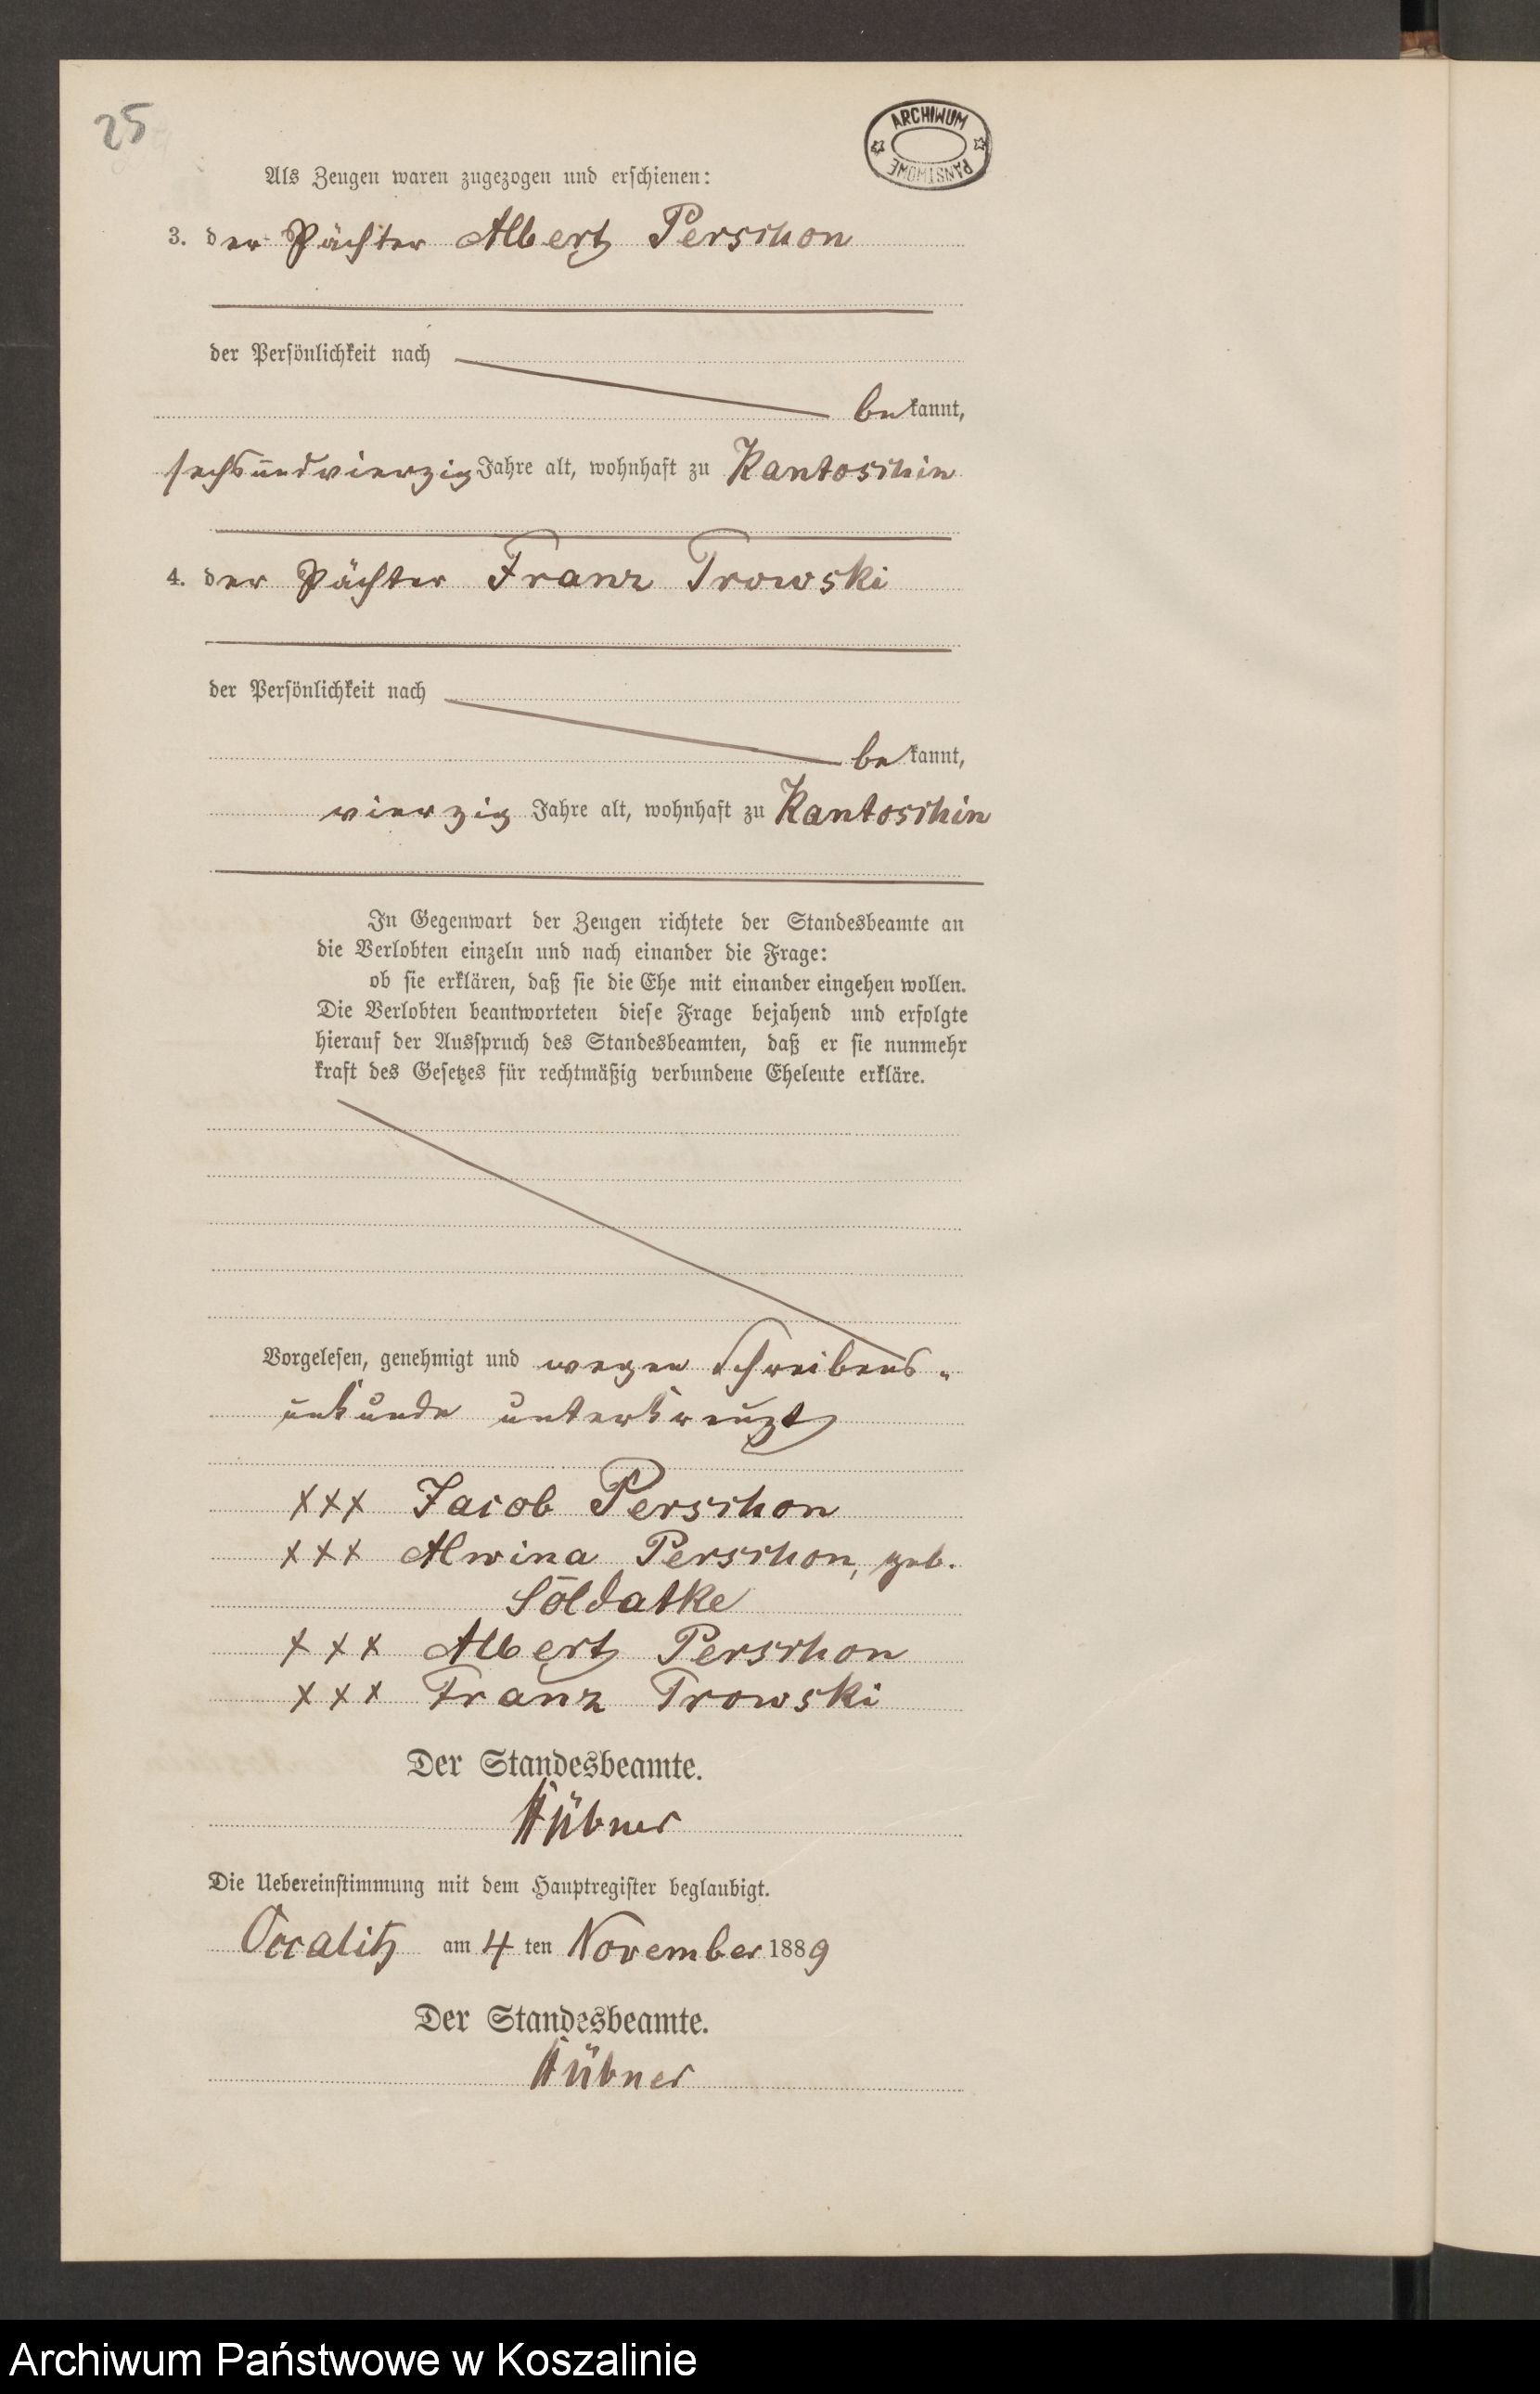 25
ARCHIWUM
PAŃSTWOWE
Als Zeugen waren zugezogen und erschienen:
3. der Pächter Albert Perschon
der Persönlichkeit nach
bekannt,
sechsundvierzig Jahre alt, wohnhaft zu Kantoschin
4. der Pächter Franz Trowski
der Persönlichkeit nach
bekannt,
vierzig Jahre alt, wohnhaft zu Kantoschin
In Gegenwart der Zeugen richtete der Standesbeamte an
die Verlobten einzeln und nach einander die Frage:
ob sie erklären, daß sie die Ehe mit einander eingehen wollen.
Die Verlobten beantworteten diese Frage bejahend und erfolgte
hierauf der Ausspruch des Standesbeamten, daß er sie nunmehr
kraft des Gesetzes für rechtmäßig verbundene Eheleute erkläre.
Vorgelesen, genehmigt und wegen Schreibens-
unkunde unterkreuzt
xxx Jacob Perschon
xxx Alwina Perschon, geb.
Söldatke
xxx Albert Perschon
xxx Franz Trowski
Der Standesbeamte.
Hübner
Die Uebereinstimmung mit dem Hauptregister beglaubigt.
Occalitz am 4 ten November 1889
Der Standesbeamte.
Hübner
Archiwum Państwowe w Koszalinie